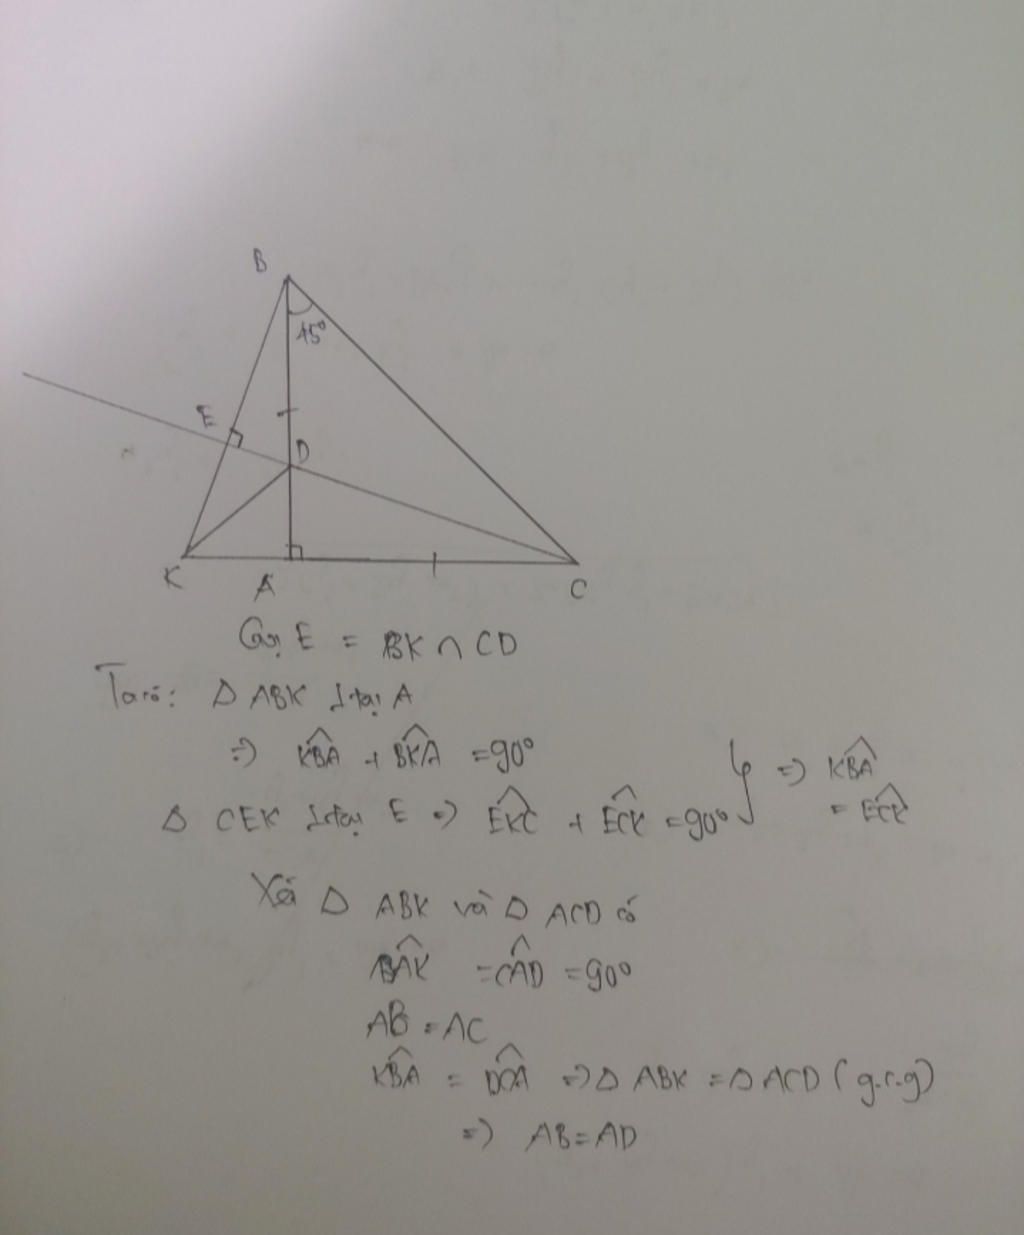 B
45°
E
D
K A C
Gọi E = BK ∩ CD
Ta có: Δ ABK ⊥ tại A
=> K̂BA + B̂KA = 90°
Δ CEK ⊥ tại E => ÊKC + ÊCK = 90° } => K̂BA
= ÊCK
Xét Δ ABK và Δ ACD có
B̂AK = ĈAD = 90°
AB = AC
K̂BA = D̂CA => Δ ABK = Δ ACD (g.c.g)
=> AB = AD